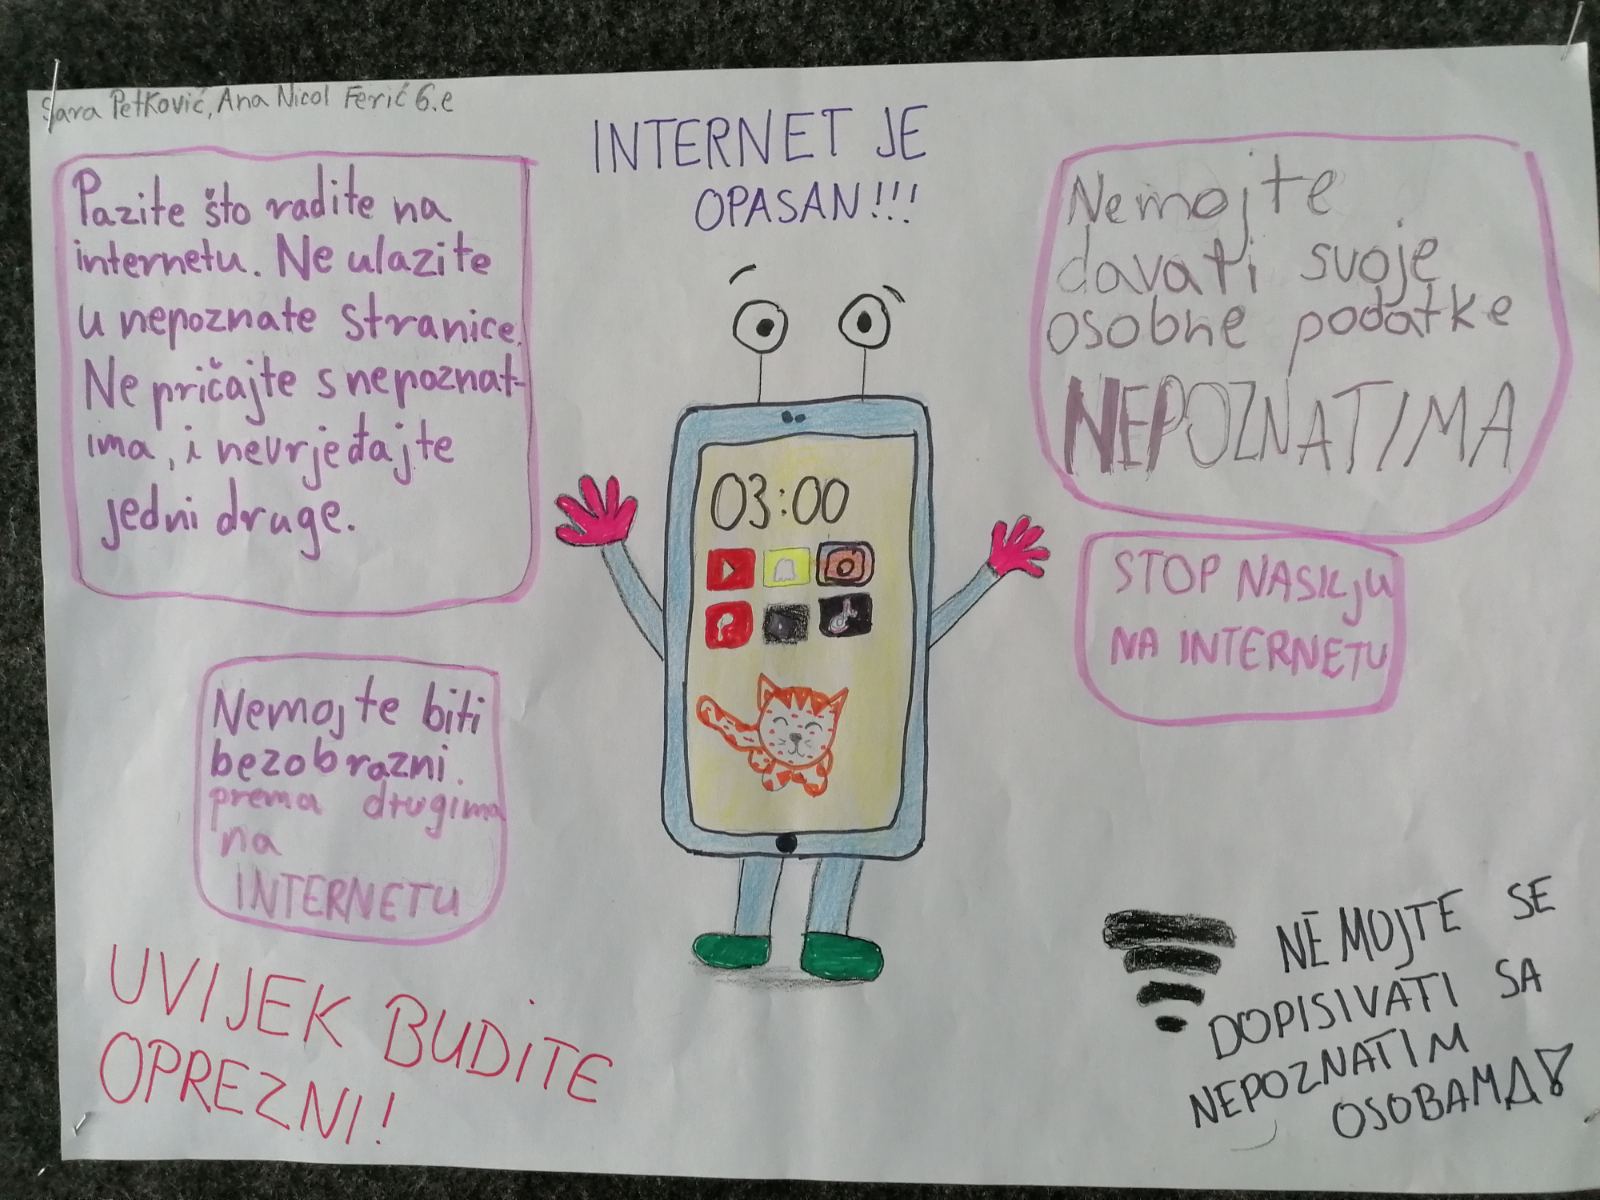 Sara Petković, Ana Nicol Ferić 6.e
INTERNET JE
OPASAN!!!
Pazite što radite na
internetu. Ne ulazite
u nepoznate stranice.
Ne pričajte s nepoznat-
ima, i nevrjeđajte
jedni druge.
Nemojte
davati svoje
osobne podatke
NEPOZNATIMA
03:00
STOP NASILJU
NA INTERNETU
Nemojte biti
bezobrazni.
prema drugima
na
INTERNETU
UVIJEK BUDITE
OPREZNI!
NEMOJTE SE
DOPISIVATI SA
NEPOZNATIM
OSOBAMA!